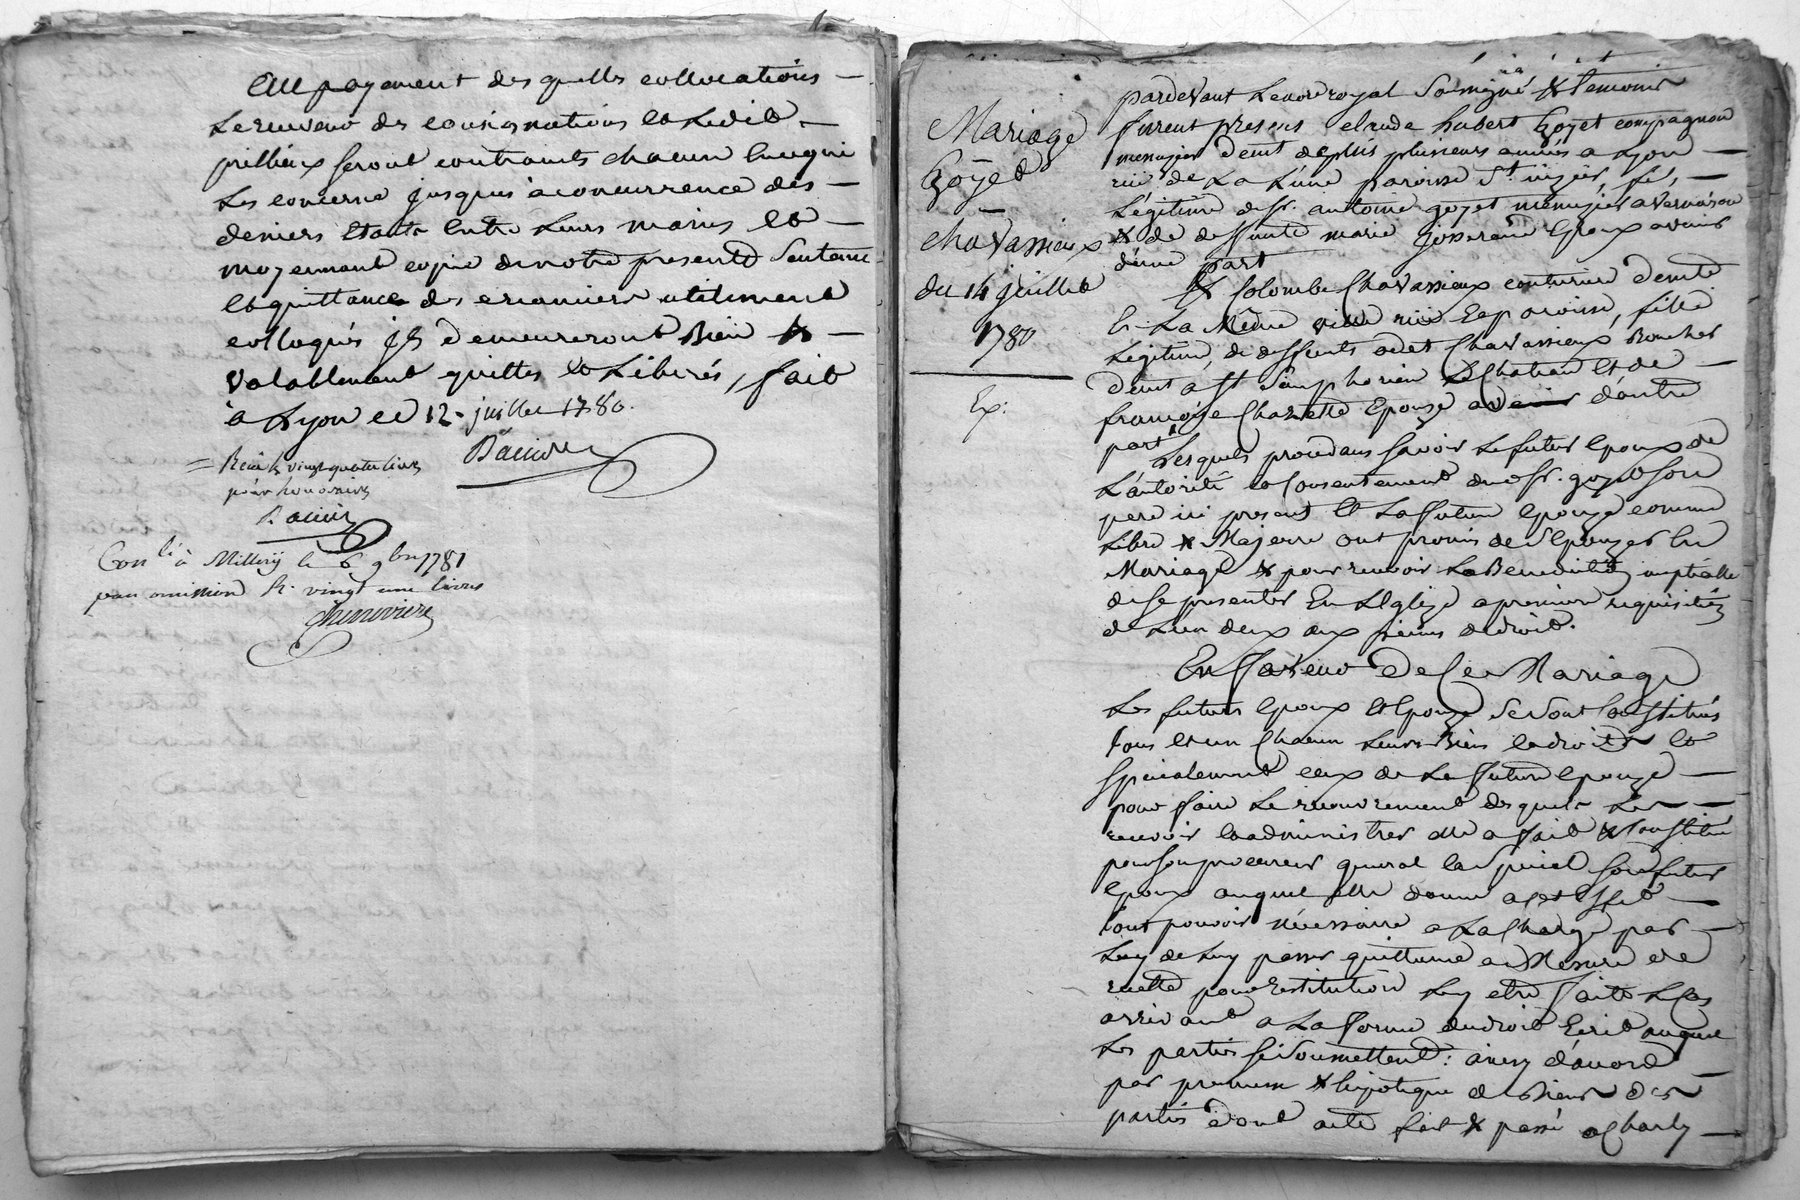 Au payement des quelles collocations
Le receveur des consignations et Ledit
seront contraints chacun en ce qui
Les concerne jusques à concurrence des
deniers Etants Entre Leurs mains et
moyennant copie de notre presente Sentence
et quittance des creanciers utilement
colloqués ils demeureront Bien &
valablement quittes et Liberés, fait
à Lyon ce 12 juillet 1780.
Reçu vingt quatre livres
pour honoraires
Con.lé à Millery le 6 9bre 1781
pour omission R. vingt une livres
Mariage
Goyet
Chavassieux
du 14 juillet
1780
Ex:
pardevant Le no.re royal Soussigné & temoins
furent presens Claude hubert Goyet compagnon
menuisier dem.t depuis plusieurs années a Lyon
ruë de La Lune paroisse S.t nizier, fils
Légitime de Sr. antoine goyet menuisier a vernaison
& de deffunte marie Epoux avenir
d'une part
& Colombe Chavassieux couturiere dem.te
En La Même ville ruë Et paroisse, fille
Legitime de deffunts Chavassieux Boucher
dem.t a St Simphorien Le Chateau Et de
françoise Epouze avenir d'autre
part
Lesquels procedans Savoir Le futur Epoux de
L'autorité et Consentement dud. Sr. goyet Son
pere ici present Et La future Epouze comme
Libre & Majeure ont promis de S'Epouzer En
Mariage & pour recevoir La Benediction nuptialle
de Se presenter En L'Eglize a premiere requisition
de L'un deux aux peines de droit.
En faveur De Ce Mariage
Les futurs Epoux Et Epouze Se Sont Constitués
tous et un Chacun Leurs Biens et droits et
Specialement ceux de La future Epouze
pour faire Le recouvrement desquels Les
recevoir et administrer elle a fait & Constitué
pour Son procureur general et Special Son futur
Epoux auquel elle donne a cet Effet
tout pouvoir nécessaire a La Charge par
Luy de Luy passer quittance a Mesure de
recette pour restitution Luy etre faite Le Cas
arrivant a La forme du droit Ecrit auquel
Les parties Se Soumettent: ainsy d'accord
par promesse & hipotique de Biens des
parties dont acte fait & passé a Charly